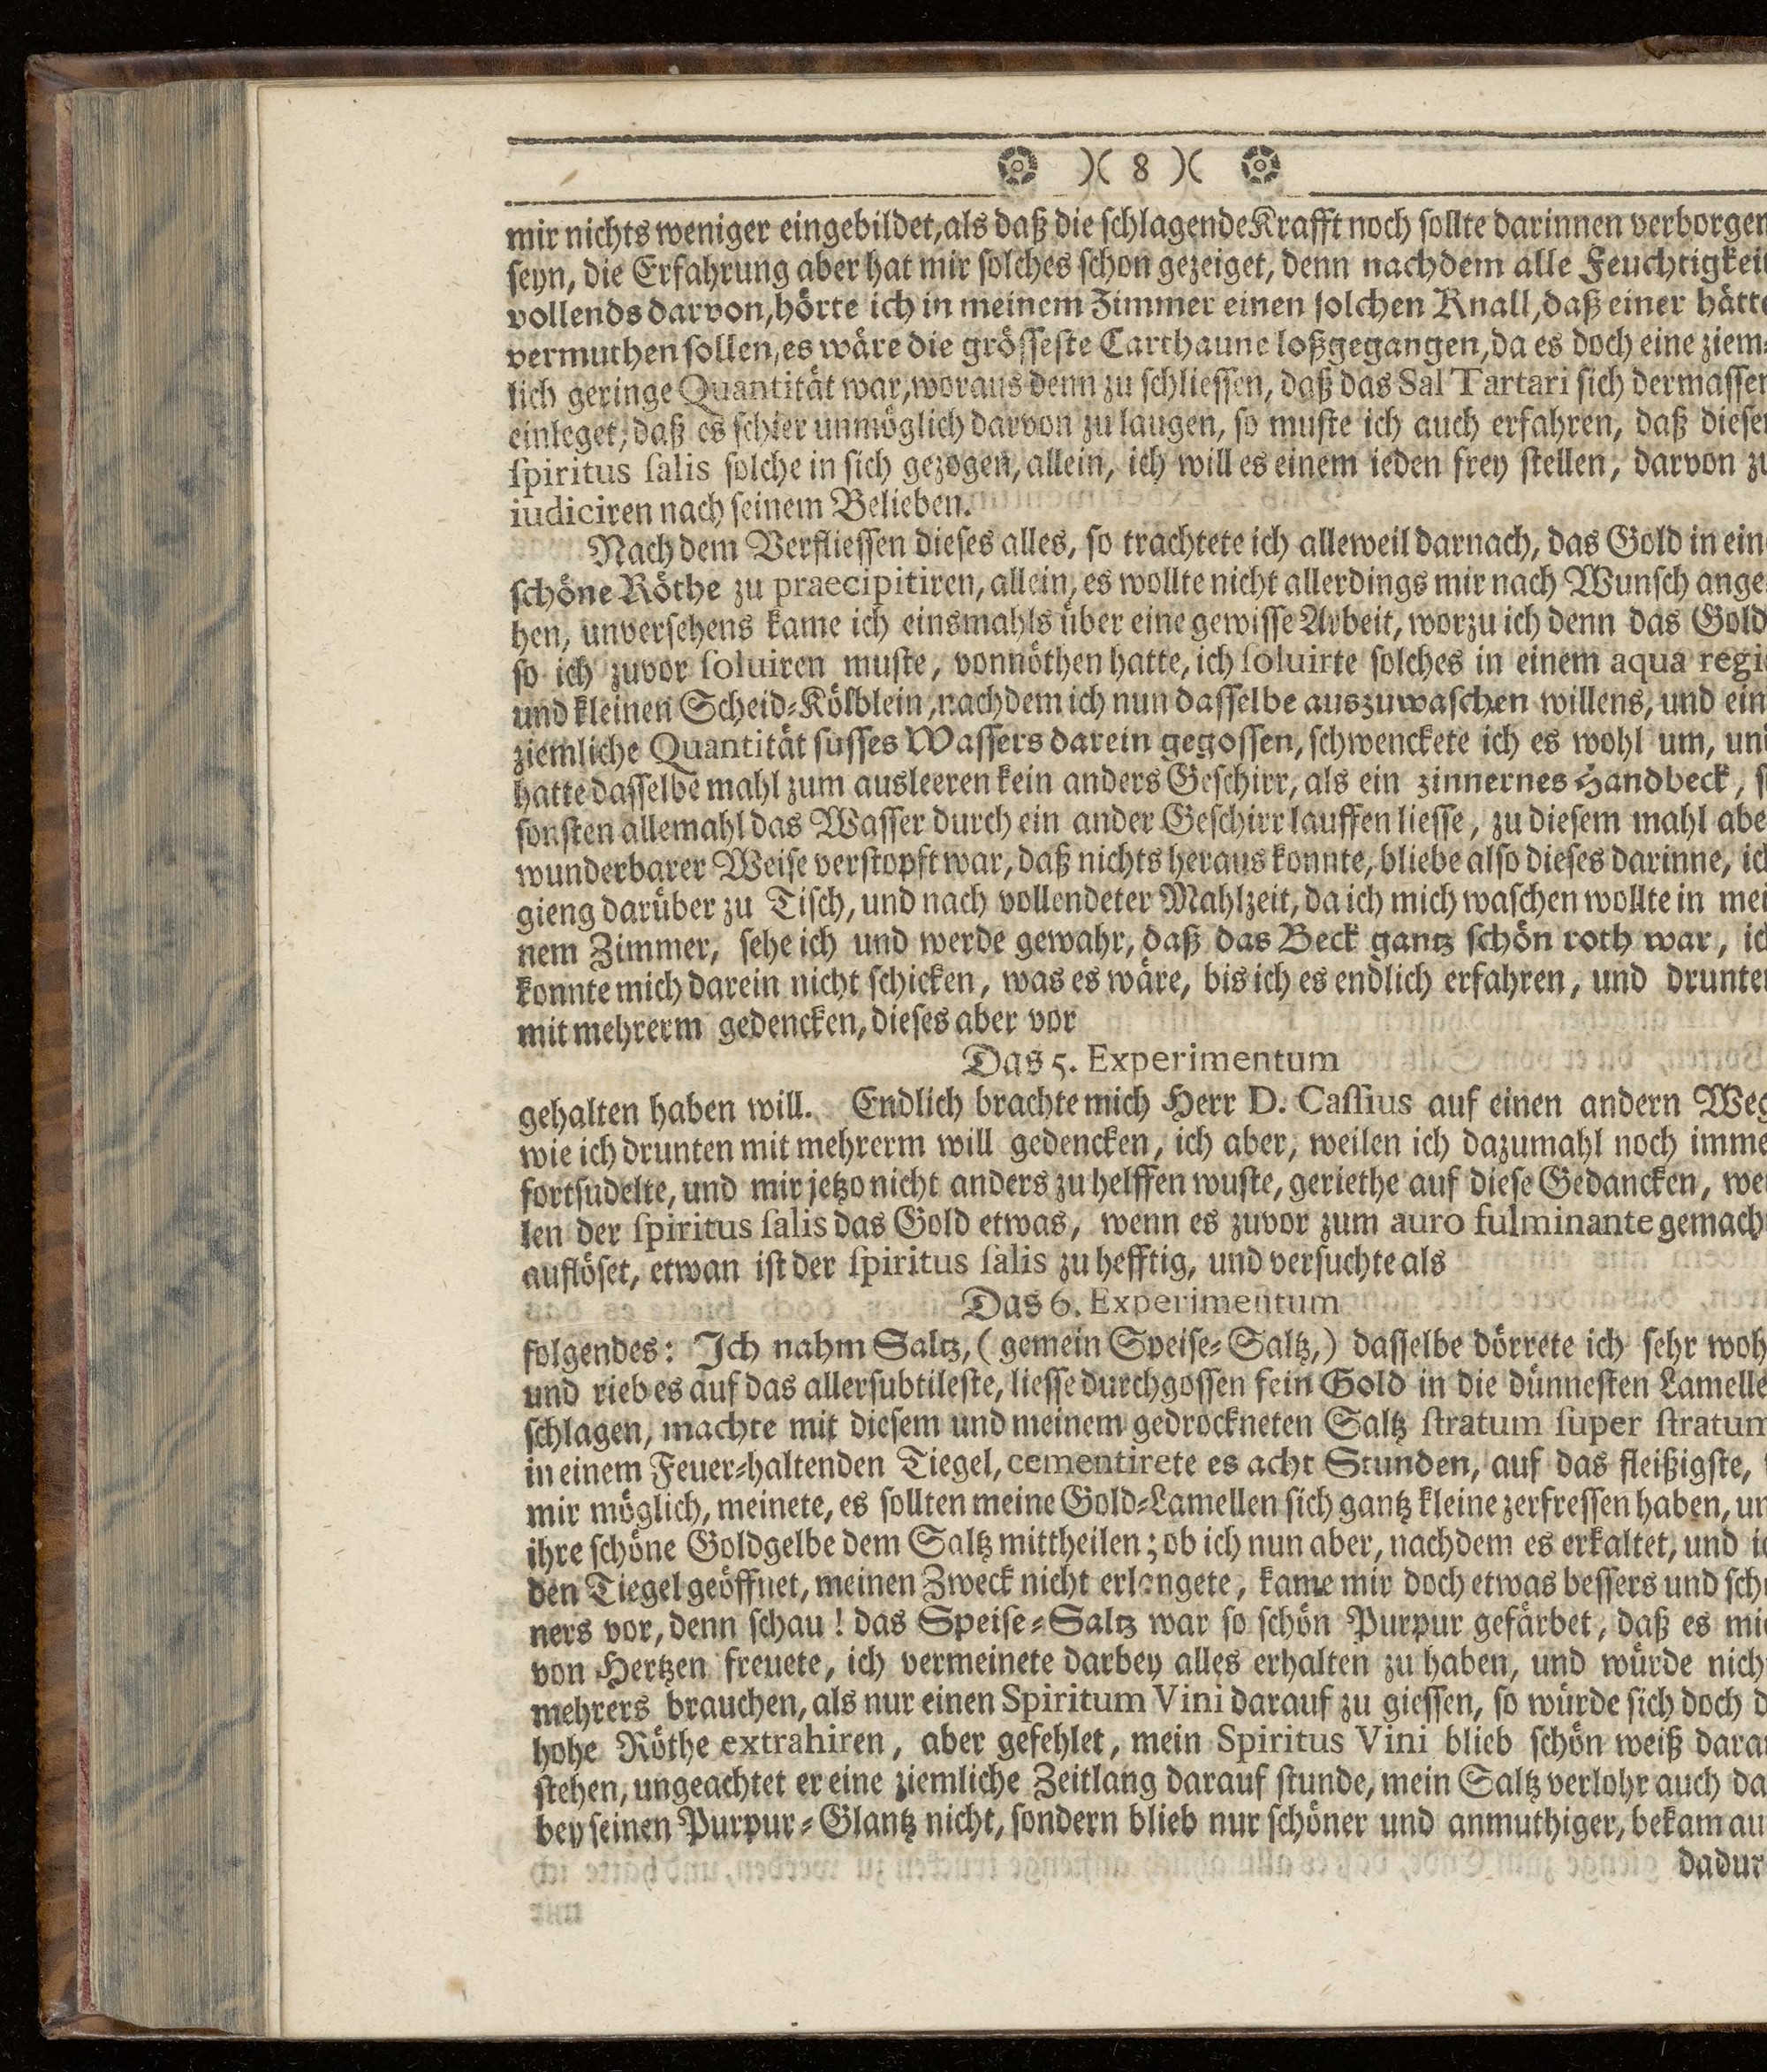 )( 8 )(
mir nichts weniger eingebildet, als daß die ſchlagende Krafft noch ſollte darinnen verborgen
ſeyn, die Erfahrung aber hat mir ſolches ſchon gezeiget, denn nachdem alle Feuchtigkeit
vollends darvon, hörte ich in meinem Zimmer einen ſolchen Knall, daß einer hätte
vermuthen ſollen, es wäre die gröſſeſte Carthaune loßgegangen, da es doch eine ziem⸗
lich geringe Quantität war, woraus denn zu ſchlieſſen, daß das Sal Tartari ſich dermaſſen
einleget, daß es ſchier unmöglich darvon zu laugen, ſo muſte ich auch erfahren, daß dieſer
ſpiritus ſalis ſolche in ſich gezogen, allein, ich will es einem ieden frey ſtellen, darvon zu
iudiciren nach ſeinem Belieben.
Nach dem Verflieſſen dieſes alles, ſo trachtete ich alleweil darnach, das Gold in ein
ſchöne Röthe zu praecipitiren, allein, es wollte nicht allerdings mir nach Wunſch ange
hen, unverſehens kame ich einsmahls über eine gewiſſe Arbeit, worzu ich denn das Gold
ſo ich zuvor ſoluiren muſte, vonnöthen hatte, ich ſoluirte ſolches in einem aqua regi
und kleinen Scheid⸗Kölblein, nachdem ich nun daſſelbe auszuwaſchen willens, und ein
ziemliche Quantität ſuſſes Waſſers darein gegoſſen, ſchwenckete ich es wohl um, und
hatte daſſelbe mahl zum ausleeren kein anders Geſchirr, als ein zinnernes Handbeck, ſ
ſonſten allemahl das Waſſer durch ein ander Geſchirr lauffen lieſſe, zu dieſem mahl abe
wunderbarer Weiſe verſtopft war, daß nichts heraus konnte, bliebe alſo dieſes darinne, ich
gieng darüber zu Tiſch, und nach vollendeter Mahlzeit, da ich mich waſchen wollte in mei
nem Zimmer, ſehe ich und werde gewahr, daß das Beck gantz ſchön roth war, ic
konnte mich darein nicht ſchicken, was es wäre, bis ich es endlich erfahren, und drunten
mit mehrerm gedencken, dieſes aber vor
Das 5. Experimentum
gehalten haben will. Endlich brachte mich Herr D. Caſſius auf einen andern Weg
wie ich drunten mit mehrerm will gedencken, ich aber, weilen ich dazumahl noch imme
fortſudelte, und mir jetzo nicht anders zu helffen wuſte, geriethe auf dieſe Gedancken, wei
len der ſpiritus ſalis das Gold etwas, wenn es zuvor zum auro fulminante gemach
auflöſet, etwan iſt der ſpiritus ſalis zu hefftig, und verſuchte als
Das 6. Experimentum
folgendes: Ich nahm Saltz, (gemein Speiſe⸗Saltz,) daſſelbe dörrete ich ſehr woh
und rieb es auf das allerſubtileſte, lieſſe durchgoſſen fein Gold in die dünneſten Lamelle
ſchlagen, machte mit dieſem und meinem gedrockneten Saltz ſtratum ſuper ſtratum
in einem Feuer⸗haltenden Tiegel, cementirete es acht Stunden, auf das fleißigſte,
mir möglich, meinete, es ſollten meine Gold⸗Lamellen ſich gantz kleine zerfreſſen haben, un
ihre ſchöne Goldgelbe dem Saltz mittheilen; ob ich nun aber, nachdem es erkaltet, und ic
den Tiegel geöffnet, meinen Zweck nicht erlangete, kame mir doch etwas beſſers und ſchö
ners vor, denn ſchau! das Speiſe⸗Saltz war ſo ſchön Purpur gefärbet, daß es mic
von Hertzen freuete, ich vermeinete darbey alles erhalten zu haben, und würde nich
mehrers brauchen, als nur einen Spiritum Vini darauf zu gieſſen, ſo würde ſich doch d
hohe Röthe extrahiren, aber gefehlet, mein Spiritus Vini blieb ſchön weiß darau
ſtehen, ungeachtet er eine ziemliche Zeitlang darauf ſtunde, mein Saltz verlohr auch da
bey ſeinen Purpur⸗Glantz nicht, ſondern blieb nur ſchöner und anmuthiger, bekam au
dadur